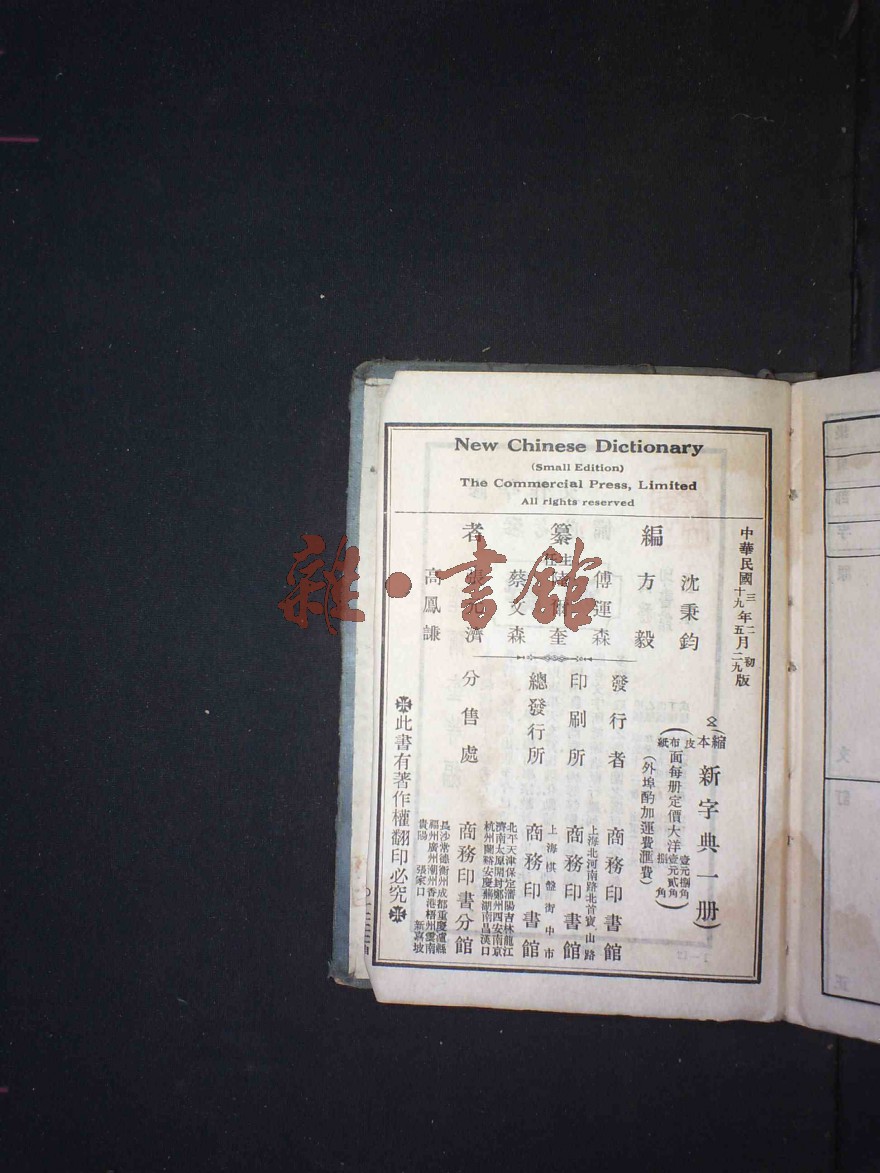 New Chinese Dictionary
(Small Edition)
The Commercial Press, Limited
All rights reserved
中華民國三年二月初版
十九年五月二九版
(縮本新字典一册)
(布面每册定價大洋壹元捌角
皮
紙
壹元貳角
捌角)
(外埠酌加運費滙費)
編纂者
沈秉鈞
方毅
傅運森
主任
陸爾奎
蔡文森
張元濟
高鳳謙
發行者 商務印書館
印刷所
上海北河南路北首寶山路
商務印書館
總發行所
上海棋盤街中市
商務印書館
分售處
北平天津保定瀋陽吉林龍江
濟南太原開封鄭州西安南京
杭州蘭谿安慶蕪湖南昌漢口
商務印書分館
長沙常德衡州成都重慶瀘縣
福州廣州潮州香港梧州雲南
貴陽 張家口 新嘉坡
此書有著作權翻印必究
雜·書館